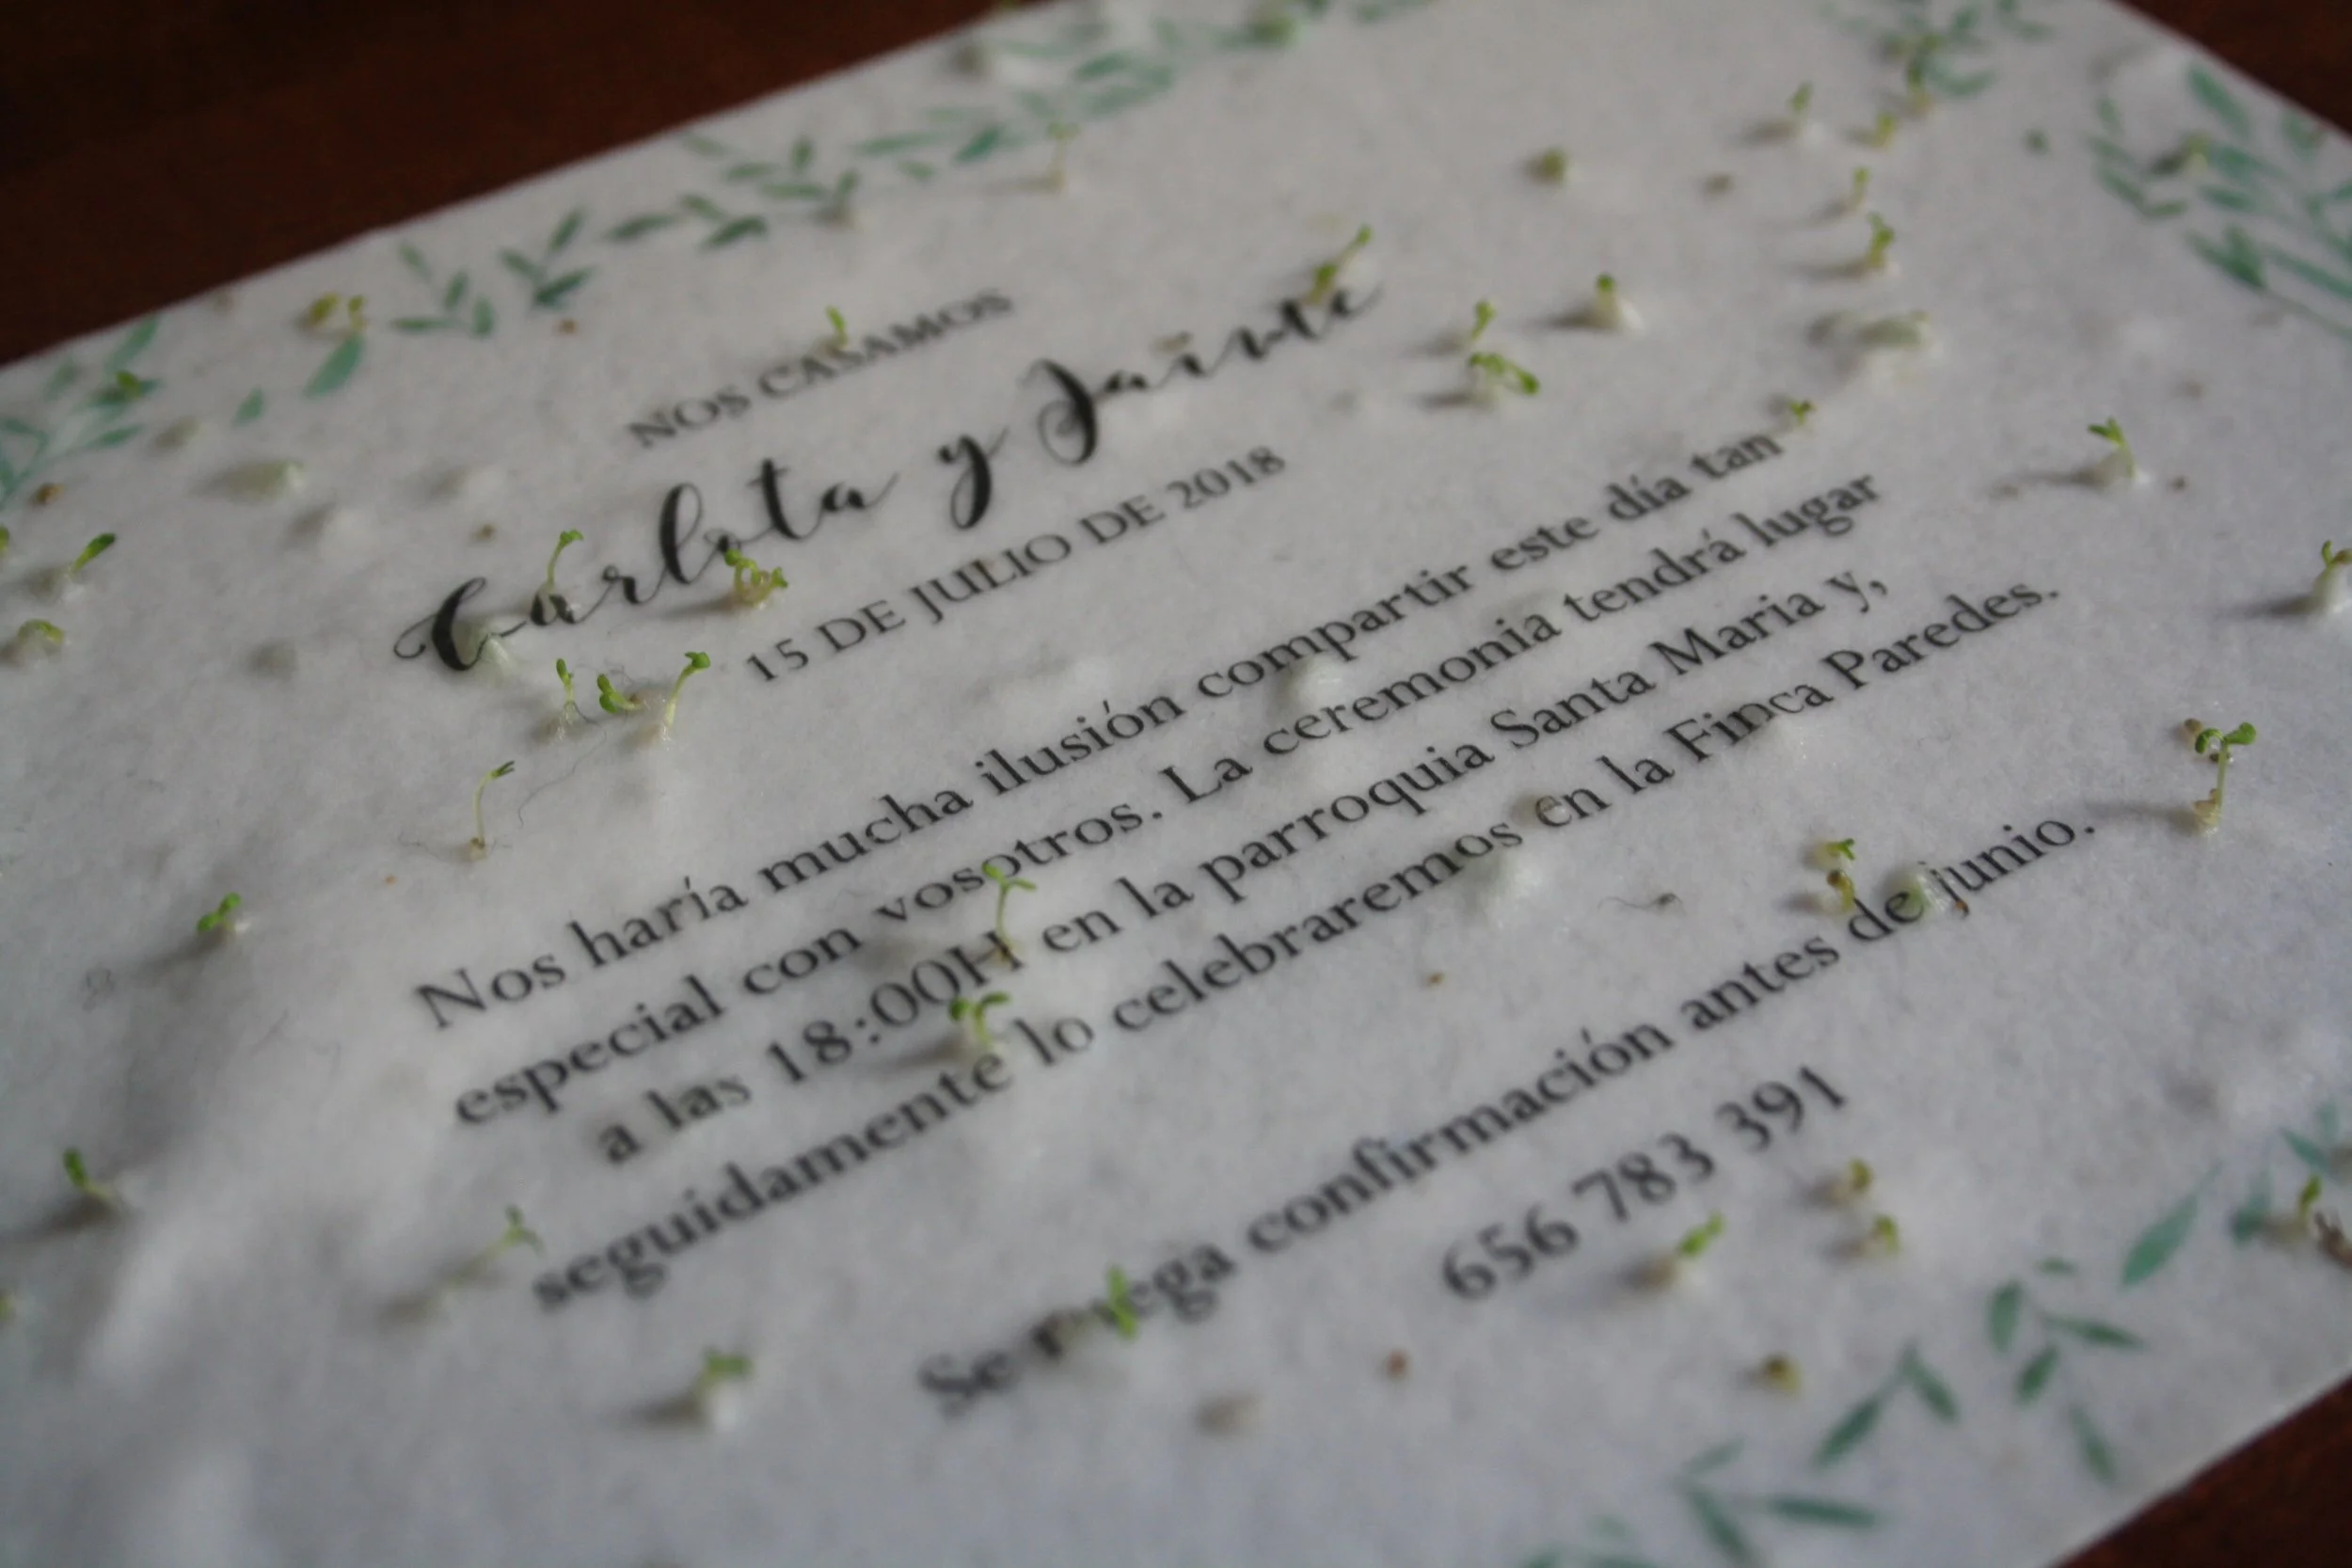 NOS CASAMOS
Carlota y Jaime
15 DE JULIO DE 2018
Nos haría mucha ilusión compartir este día tan
especial con vosotros. La ceremonia tendrá lugar
a las 18:00H en la parroquia Santa Maria y,
seguidamente lo celebraremos en la Finca Paredes.
Se ruega confirmación antes de junio.
656 783 391